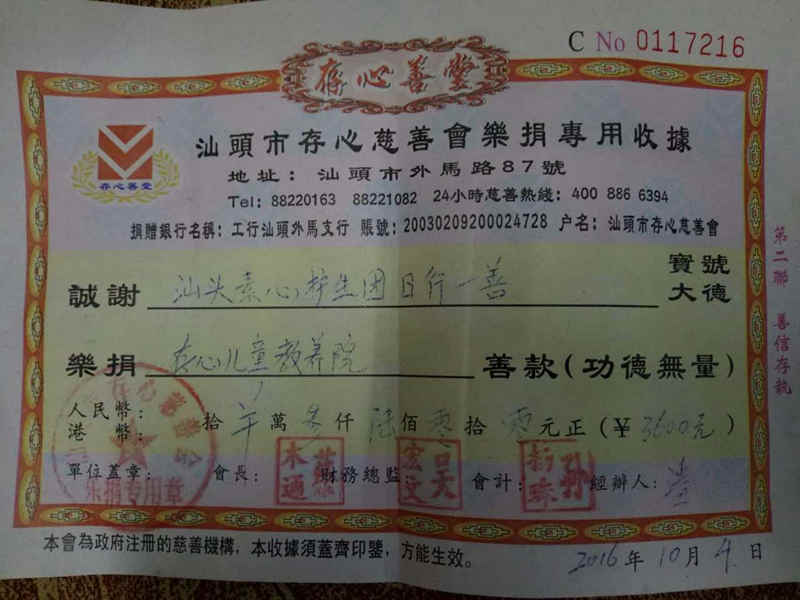 C No 0117216
存心善堂
汕頭市存心慈善會樂捐專用收據
存心善堂
地址：汕頭市外馬路87號
Tel: 88220163 88221082 24小時慈善熱綫：400 886 6394
捐贈銀行名稱：工行汕頭外馬支行 賬號：2003020920024728 户名：汕頭市存心慈善會
誠謝 汕头素心 日行一善 寶號 大德
樂捐 存心儿童教养院 善款（功德無量）
人民幣：
港幣： 拾 萬 仟 陆 佰 零 拾 元正（￥3600元）
單位蓋章： 會長： 財務總監 會計： 經辦人：
乐捐专用章
本會為政府注册的慈善機構，本收據須蓋齊印鑒，方能生效。
2016年10月4日
第二聯 善信存執